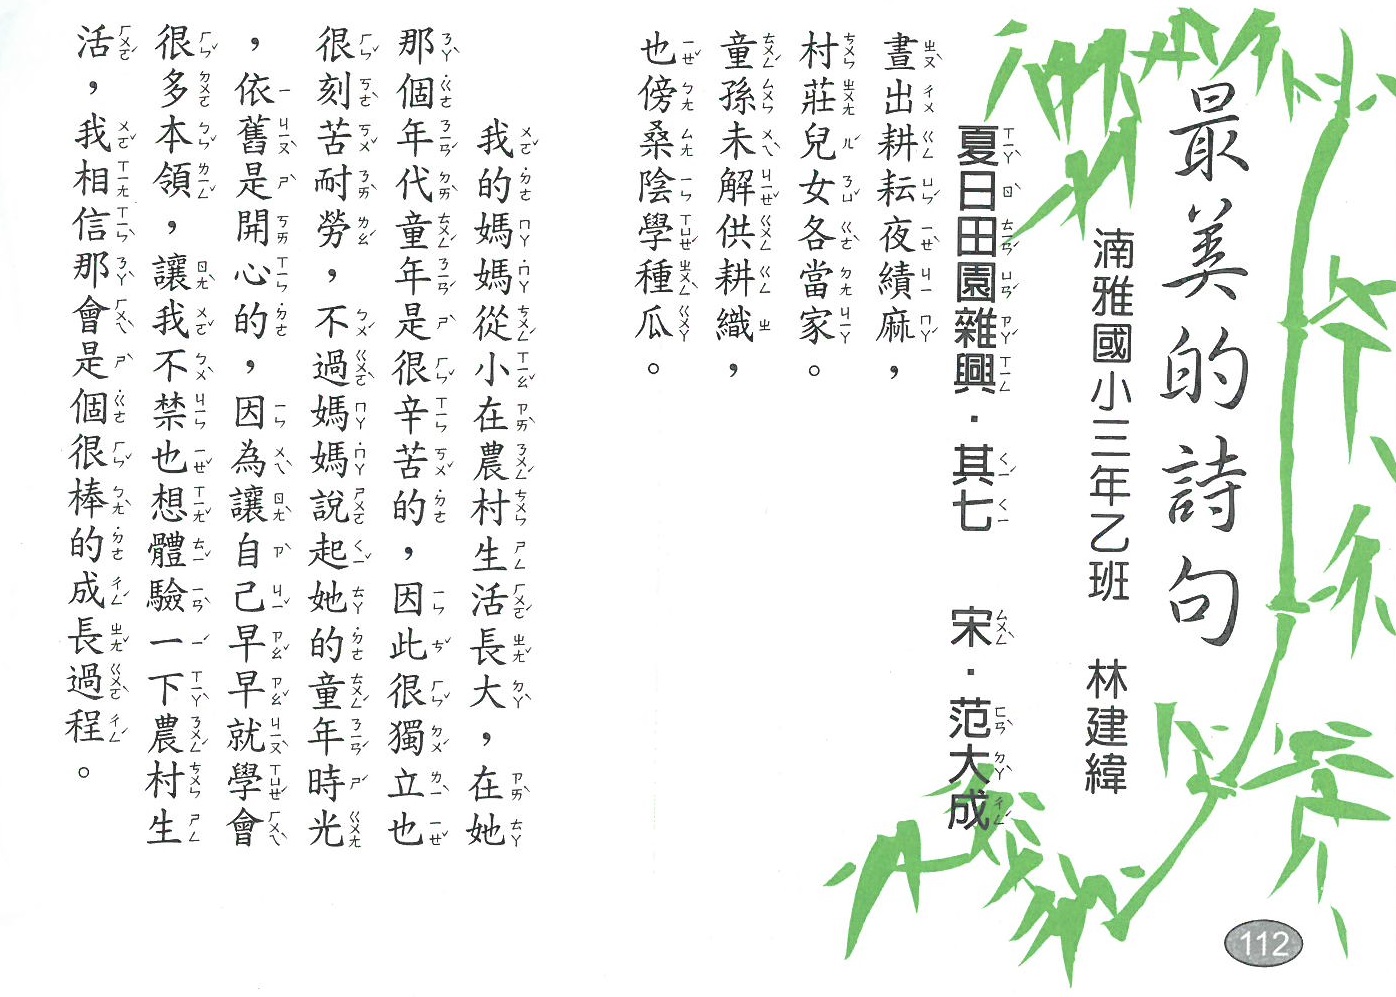 最美的詩句
湳雅國小三年乙班　林建緯
夏日田園雜興．其七　宋．范大成
晝出耕耘夜績麻，
村莊兒女各當家。
童孫未解供耕織，
也傍桑陰學種瓜。
我的媽媽從小在農村生活長大，在她
那個年代童年是很辛苦的，因此很獨立也
很刻苦耐勞，不過媽媽說起她的童年時光
，依舊是開心的，因為讓自己早早就學會
很多本領，讓我不禁也想體驗一下農村生
活，我相信那會是個很棒的成長過程。
112